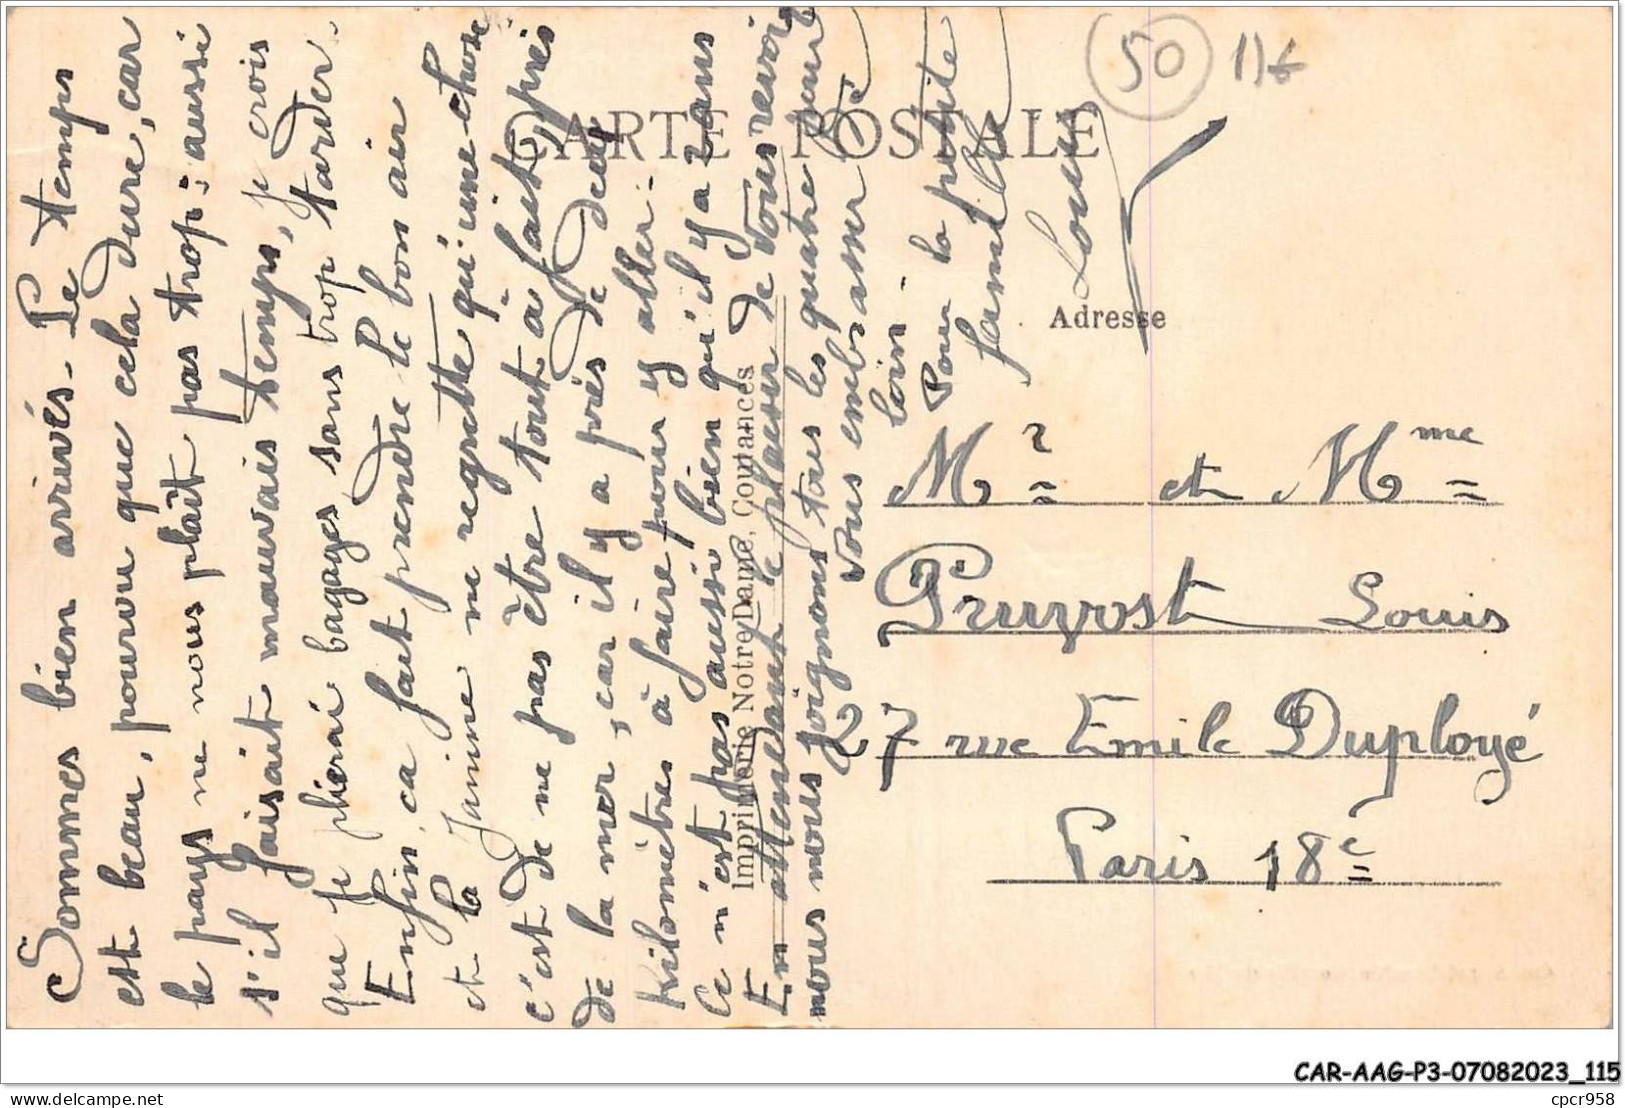 CARTE POSTALE
50
Adresse
Imprimerie Notre Dame, Coutances
Sommes bien arrivés. Le temps
est beau, pourvu que cela dure, car
le pays ne nous plaît pas trop; aussi
s'il faisait mauvais temps, je crois
que je plierai bagages sans trop tarder.
Enfin, ca fait prendre le bon air
et la Janine ne regrette qu'une chose
c'est de ne pas être tout à fait près
de la mer, car il y a près de deux
kilomètres à faire pour y aller.
Ce n'est pas aussi bien qu'il y a 2 ans
En attendant le plaisir de vous revoir
nous nous joignons tous les quatre pour
vous embrasser de
loin.
Pour la petite
famille
Louis
Mr et Mme
Pruvost Louis
27 rue Emile Duployé
Paris 18e
CAR-AAG-P3-07082023_115
delcampe.net
cpcr958